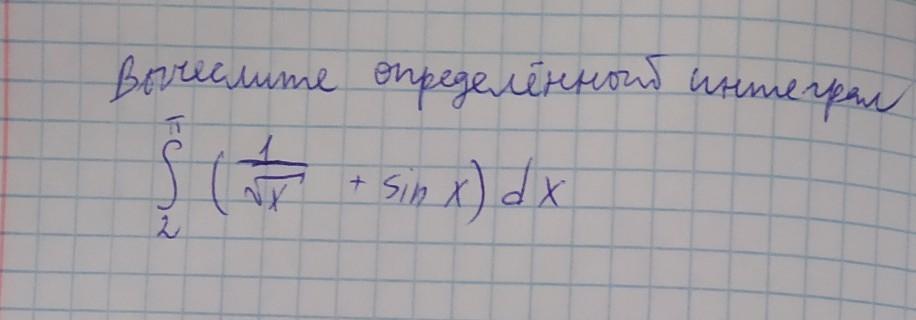 Вычеслите определённый интеграл
∫₂^π (1/√x + sin x) dx